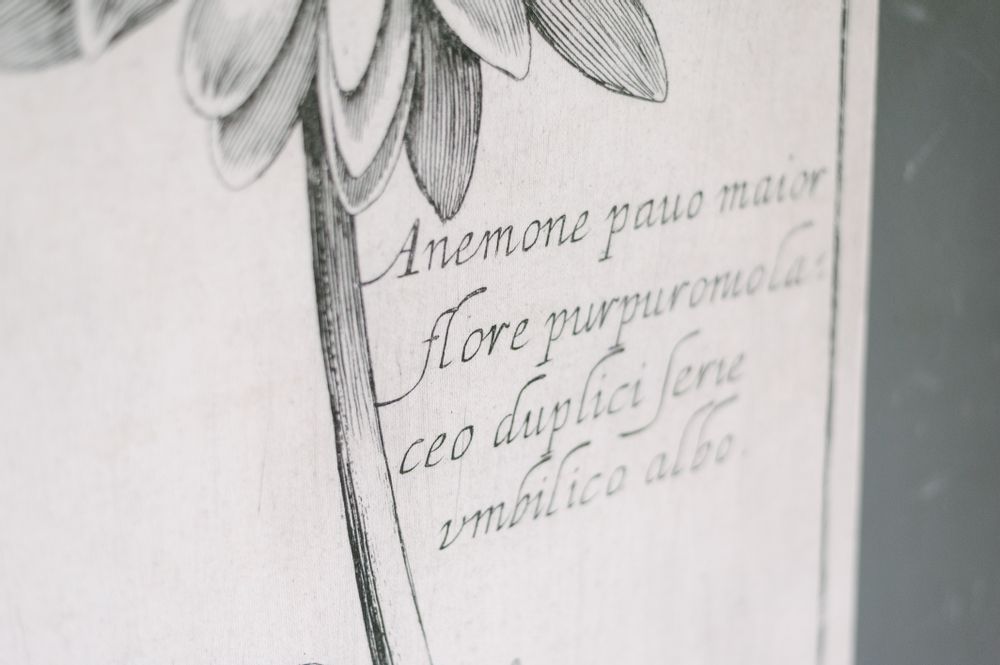 Anemone pauo maior
flore purpurouiola=
ceo duplici ſerie
vmbilico albo.